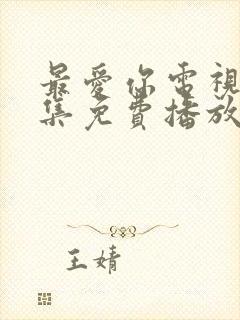 最愛你電視
集免費播放
王婧